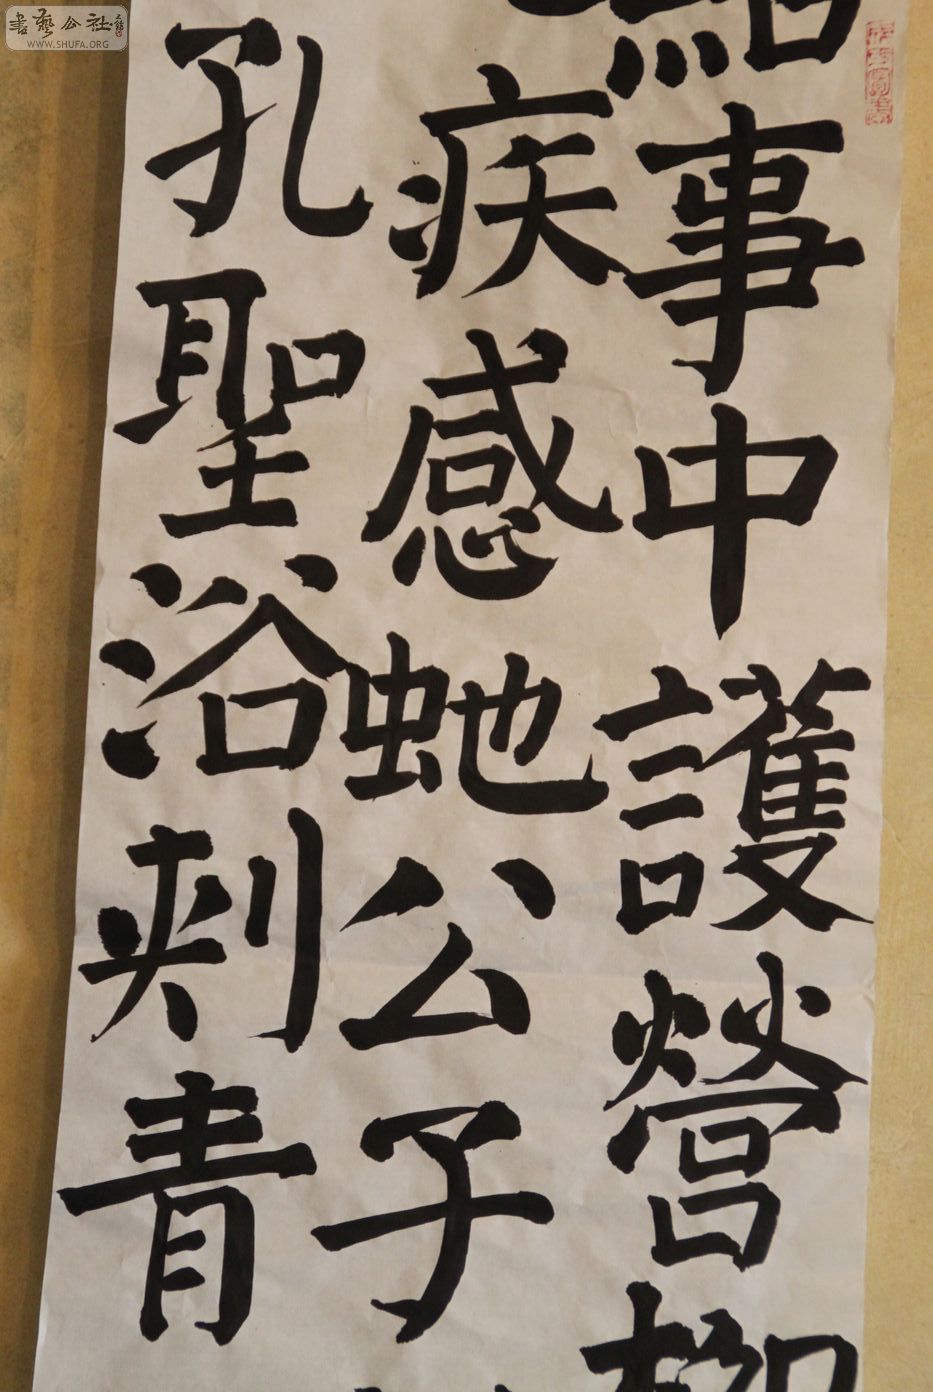 書藝公社
WWW.SHUFA.ORG
事中護營
疾感虵公子
孔聖浴刾青